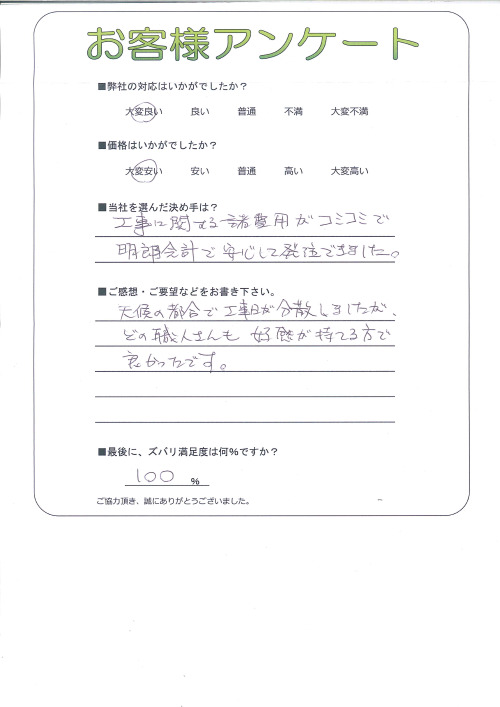 お客様アンケート
■弊社の対応はいかがでしたか？
大変良い 良い 普通 不満 大変不満
■価格はいかがでしたか？
大変安い 安い 普通 高い 大変高い
■当社を選んだ決め手は？
工事に関する諸費用がコミコミで
明朗会計で安心して発注できました。
■ご感想・ご要望などをお書き下さい。
天候の都合で工期が分散しましたが、
どの職人さんも好感が持てる方で
良かったです。
■最後に、ズバリ満足度は何％ですか？
100 ％
ご協力頂き、誠にありがとうございました。